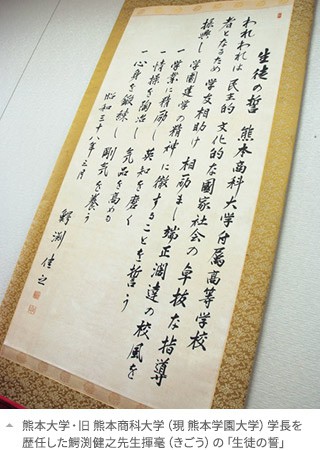 生徒の誓 熊本商科大学付属高等学校
われわれは 民主的 文化的な國家社会の卓抜な指導
者となるため 学友相助け 相励まし 端正濶達の校風を
振興し 学園建学の精神に徹することを誓う
一 学業に精励し 英知を磨く
一 情操を陶冶し 気品を高める
一 心身を鍛練し 剛気を養う
昭和三十八年三月
鰐渕健之
熊本大学・旧 熊本商科大学（現 熊本学園大学）学長を
歴任した鰐渕健之先生揮毫（きごう）の「生徒の誓」